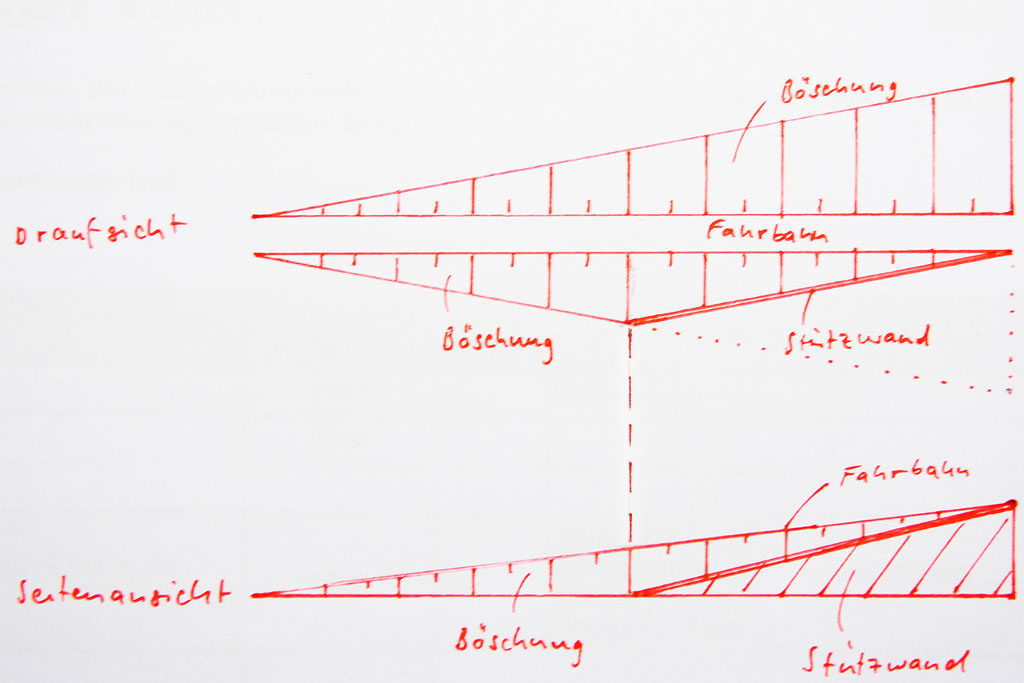 Böschung
Draufsicht
Fahrbahn
Böschung
Stützwand
Fahrbahn
Seitenansicht
Böschung
Stützwand